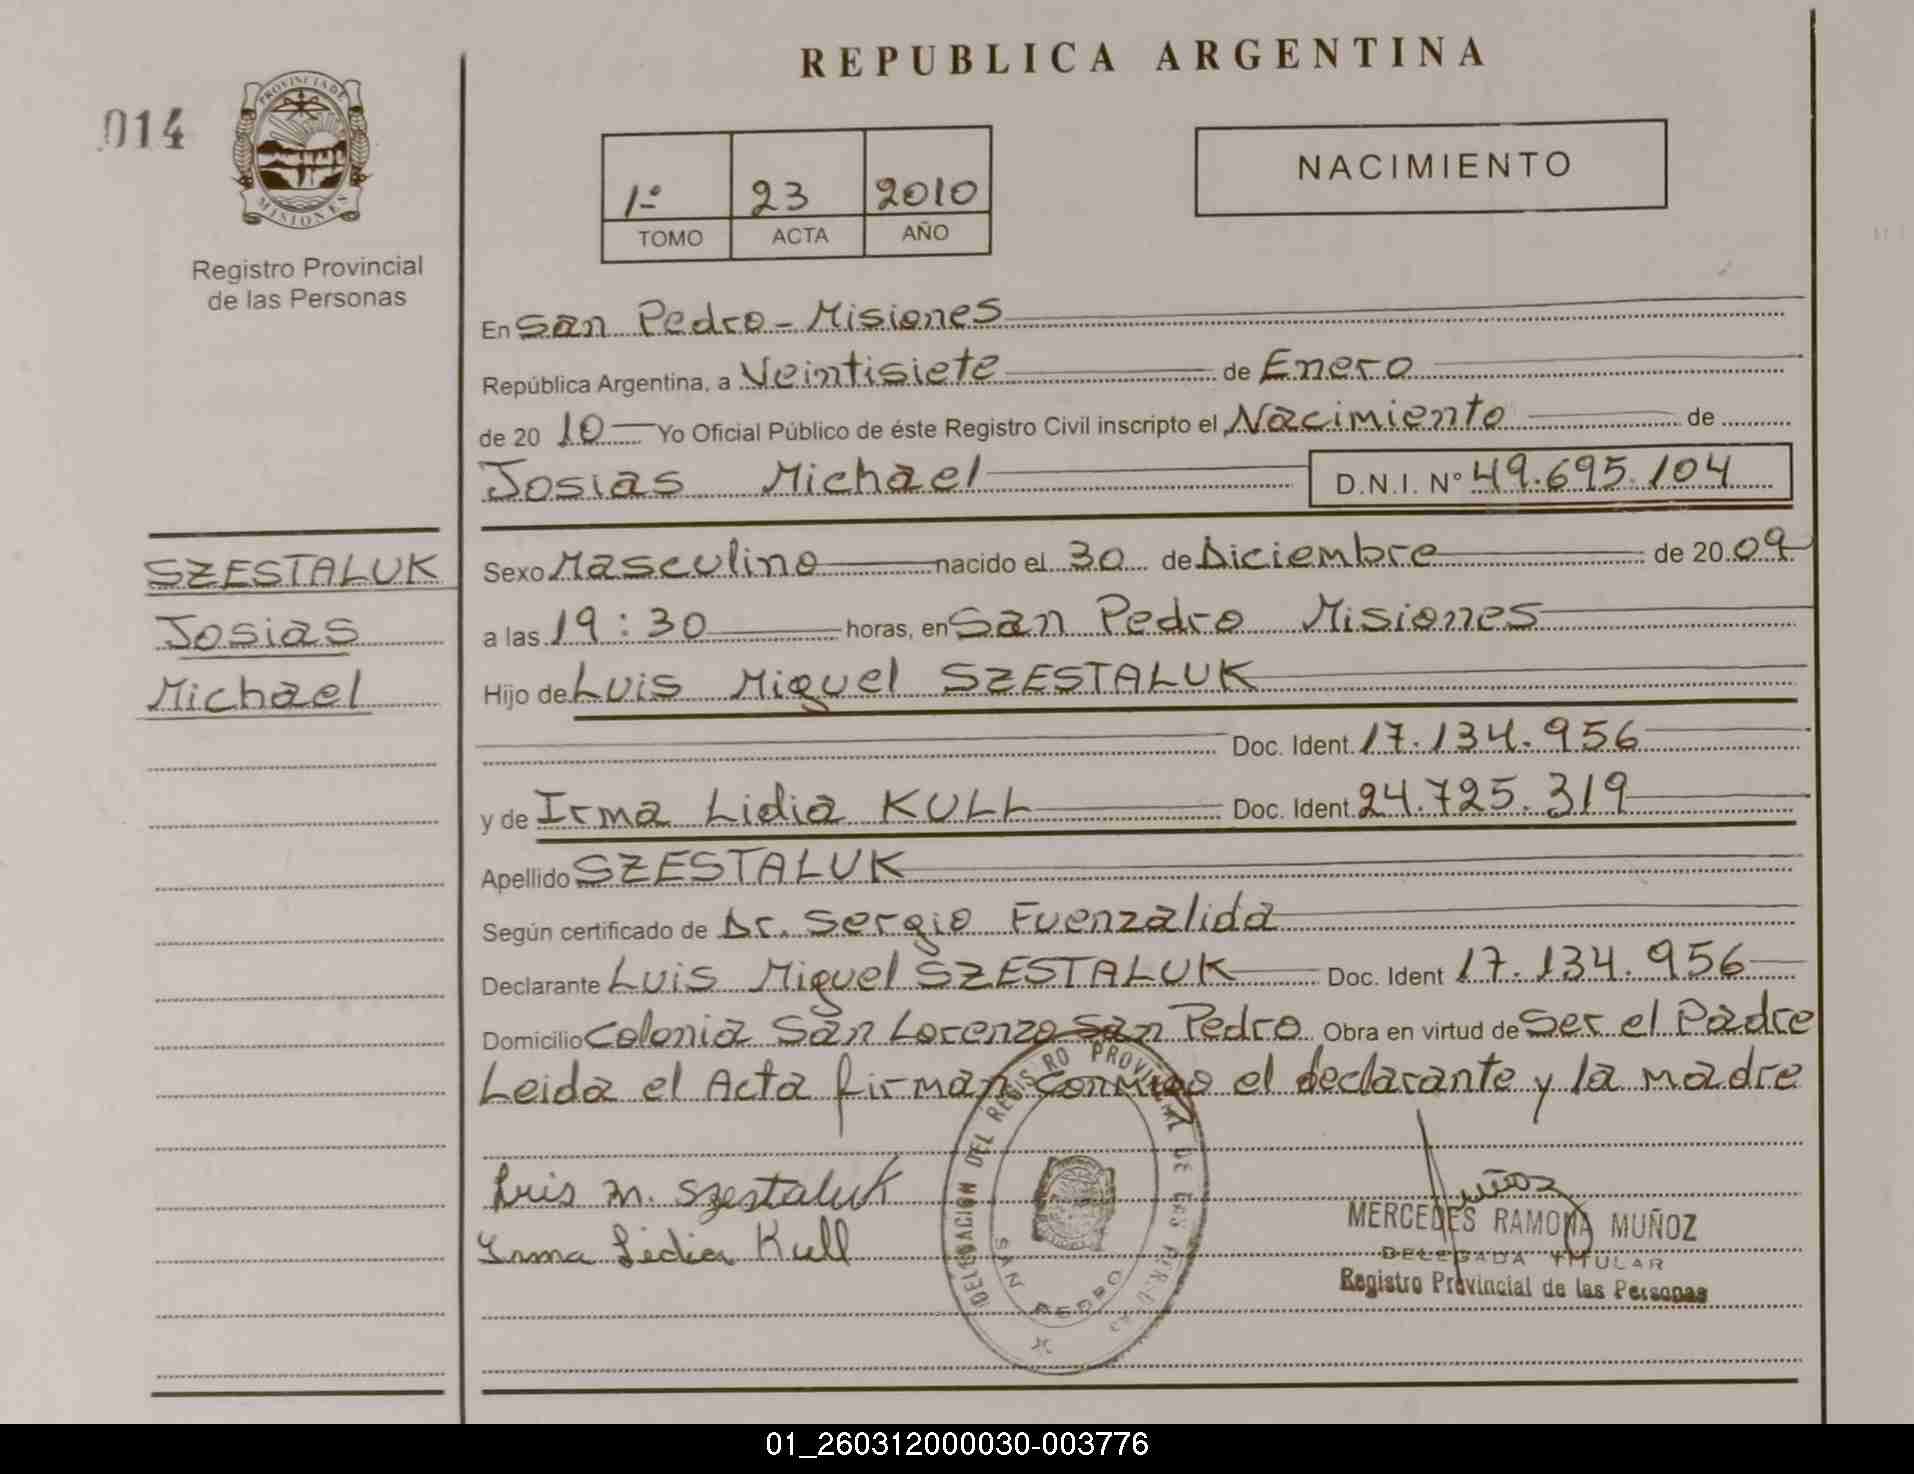 REPUBLICA ARGENTINA
014
PROVINCIA DE
MISIONES
Registro Provincial
de las Personas
1º 23 2010
TOMO ACTA AÑO
NACIMIENTO
En San Pedro - Misiones
República Argentina, a Veintisiete de Enero
de 20 10 Yo Oficial Público de éste Registro Civil inscripto el Nacimiento de
Josias Michael D.N.I. Nº 49.695.104
SZESTALUK
Josias
Michael
Sexo Masculino nacido el 30 de Diciembre de 20 09
a las 19:30 horas, en San Pedro Misiones
Hijo de Luis Miguel SZESTALUK
Doc. Ident. 17.134.956
y de Irma Lidia KULL Doc. Ident. 24.725.319
Apellido SZESTALUK
Según certificado de Dr. Sergio Fuenzalida
Declarante Luis Miguel SZESTALUK Doc. Ident 17.134.956
Domicilio Colonia San Lorenzo San Pedro Obra en virtud de Ser el Padre
Leida el Acta firman conmigo el declarante y la madre
Luis M. Szestaluk
Irma Lidia Kull
DELEGACION DEL REGISTRO PROVINCIAL DE LAS
SAN PEDRO
Muñoz
MERCEDES RAMONA MUÑOZ
DELEGADA TITULAR
Registro Provincial de las Personas
01_260312000030-003776